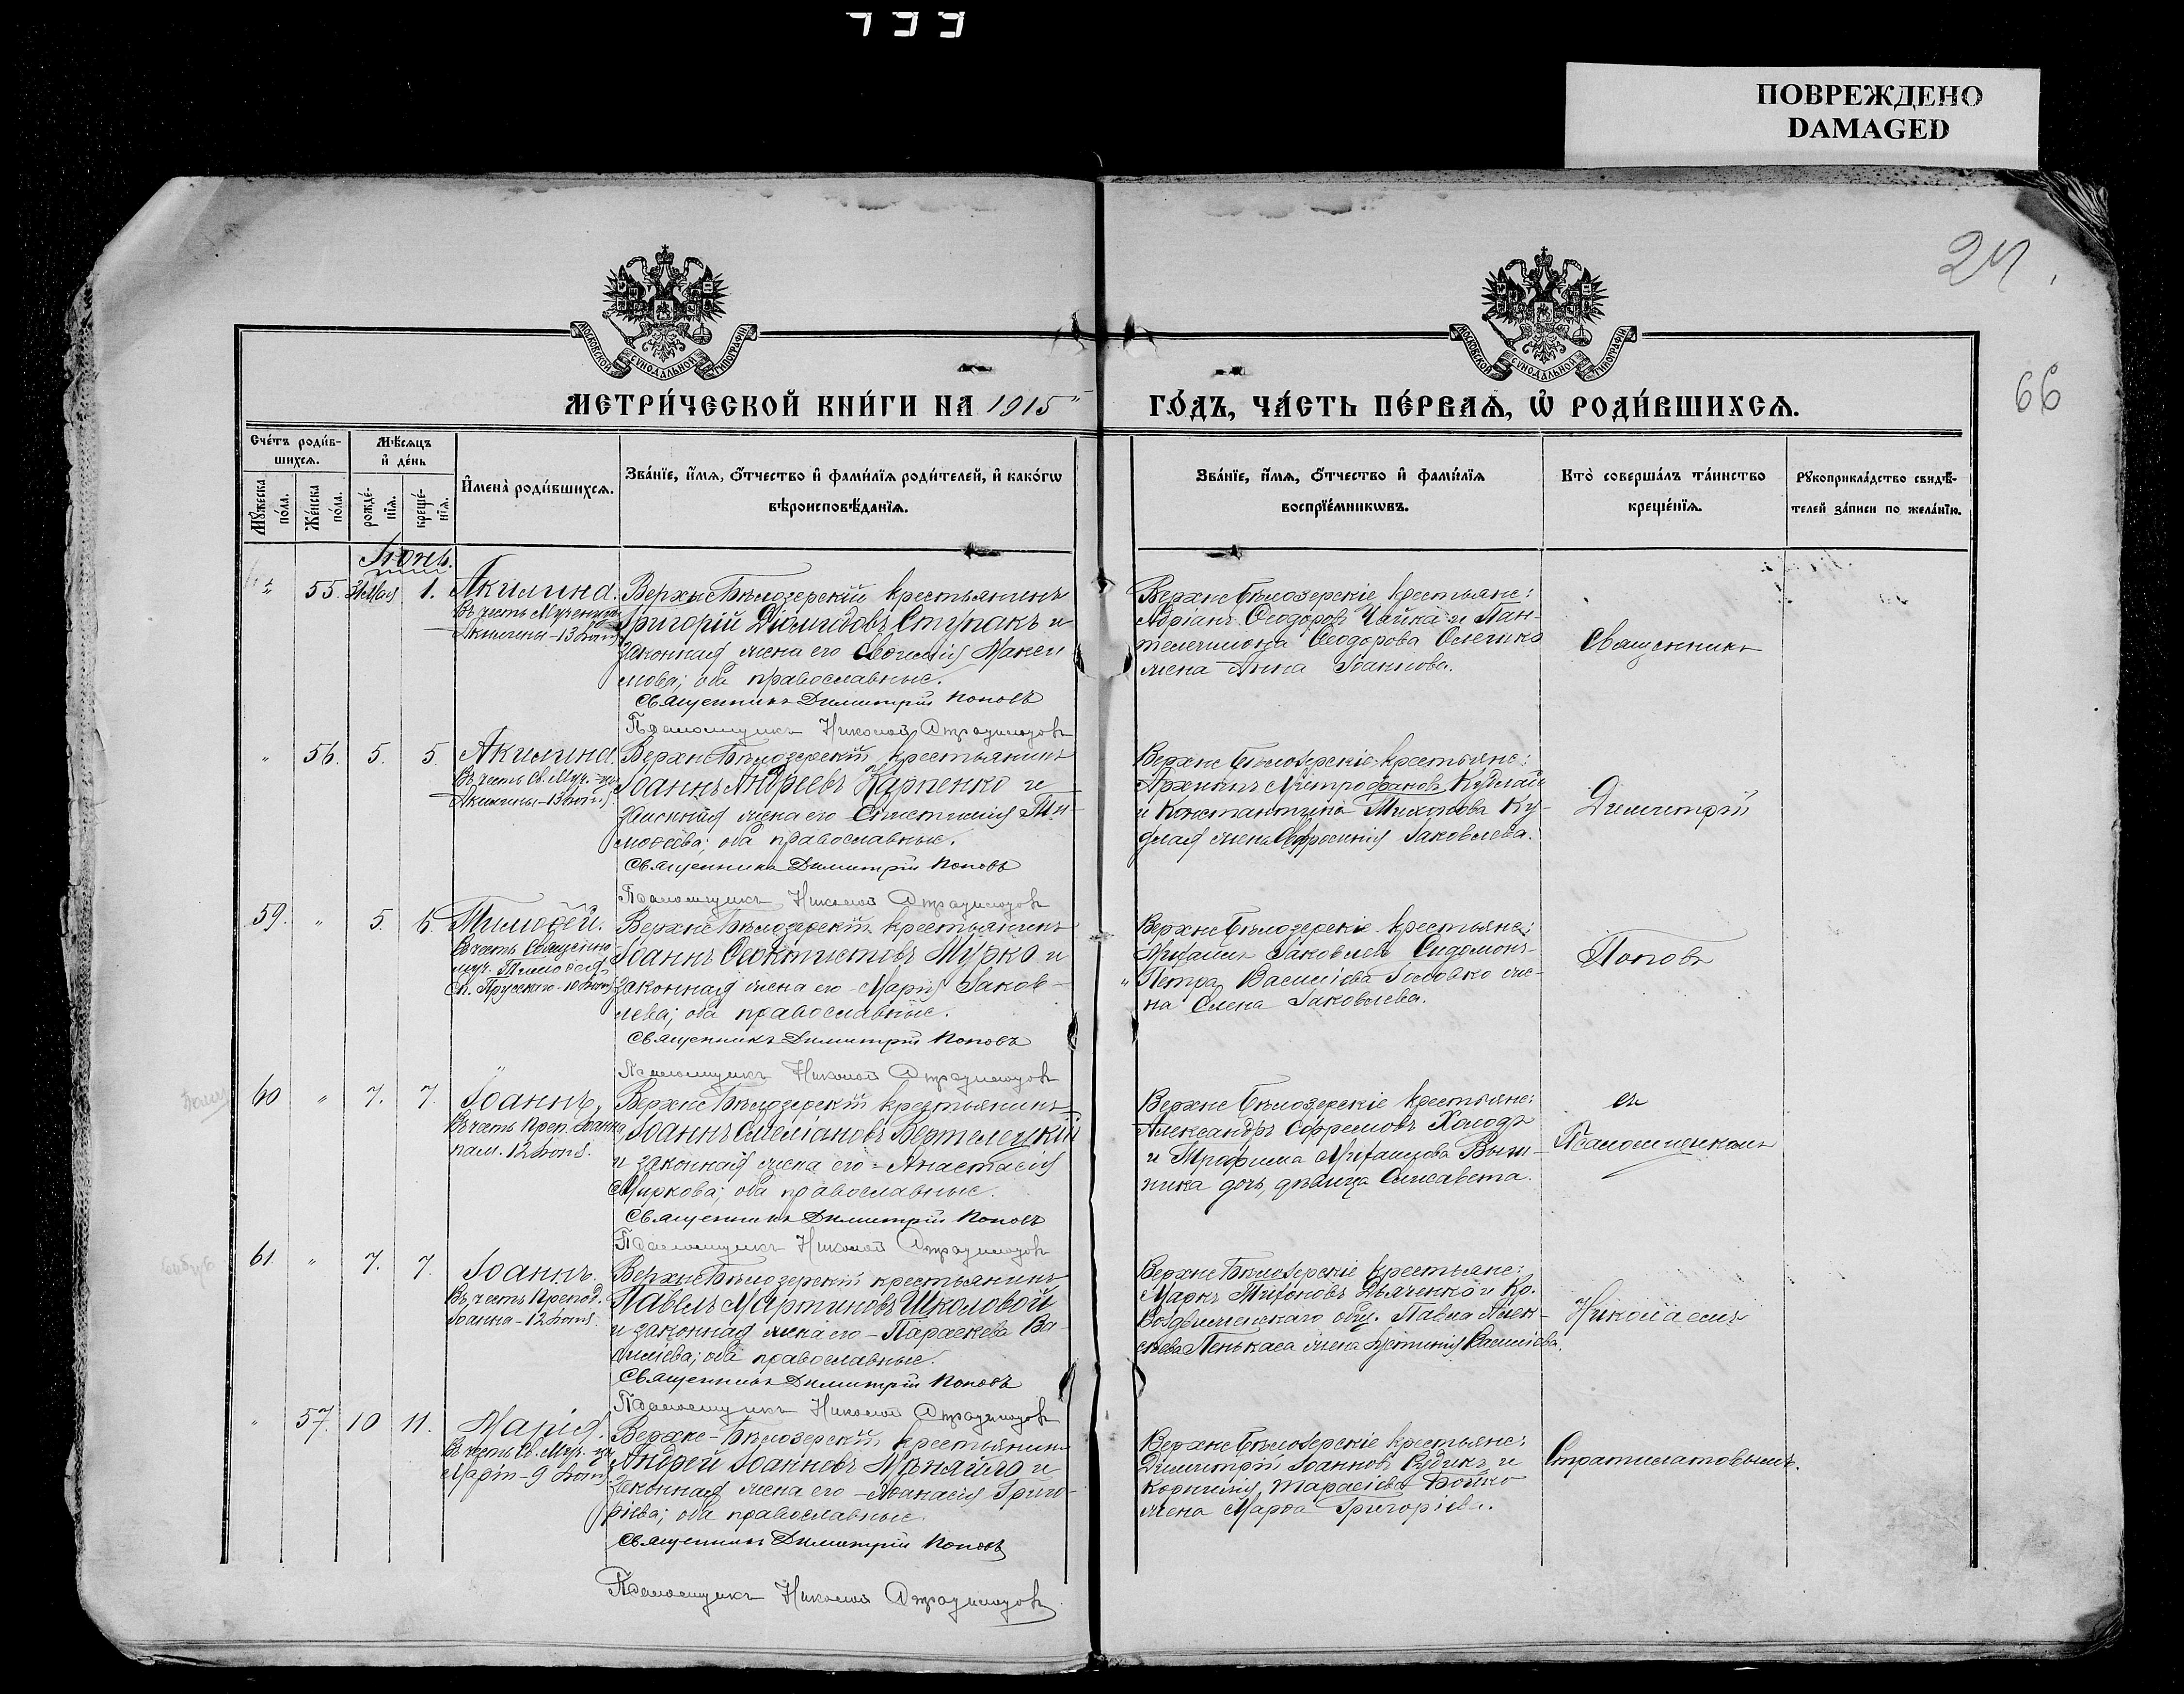 ПОВРЕЖДЕНО
DAMAGED
27
66
МОСКОВСКОЙ СѴНОДАЛЬНОЙ ТИПОГРАФІИ
МОСКОВСКОЙ СѴНОДАЛЬНОЙ ТИПОГРАФІИ
МЕТРИ́ЧЕСКОЙ КНИ́ГИ НА 1915
ГО́ДЪ, ЧА́СТЬ ПЕ́РВАѦ, Ѡ҆ РОДИ́ВШИХСѦ.
Сче́тъ роди́в-
шихсѧ.
Мѣ́сѧцъ
и҆ де́нь
Мꙋ́жеска по́ла.
Же́нска по́ла.
рожде́-
нїѧ.
креще́-
нїѧ.
И҆мена̀ роди́вшихсѧ.
Зва́нїе, и҆́мѧ, ѻ҆́тчество и҆ фами́лїѧ роди́телей, и҆ како́гѡ
вѣроисповѣ́данїѧ.
Зва́нїе, и҆́мѧ, ѻ҆́тчество и҆ фами́лїѧ
воспрїе́мникѡвъ.
Кто̀ соверша́лъ та́инство
креще́нїѧ.
Рꙋкоприкла́дство свидѣ́-
телей за́писи по жела́нїю.
Іюнь.
55. 31 Мая 1. Акилина.
Въ честь Мученицы
Акилины - 13 Іюня
Верхне Бѣлозерскій крестьянинъ
Григорій Діомидовъ Ступакъ и
законная жена его Максм
мова; оба православные.
Священникъ Димитрій Поповъ
Псаломщикъ Николай Стратилатовъ
Верхне Бѣлозерскіе крестьяне:
Адріанъ Ѳеодоровъ Чайка и Пан-
телеимона Ѳеодорова
жена Анна Іоаннова.
Священникъ
" 56. 5. 5. Акилина.
Въ честь Св. Муч.-цы
Акилины - 13 Іюня
Верхне Бѣлозерскій крестьянинъ
Іоаннъ Андреевъ Карпенко и
законная жена его - Ти-
моѳеева; оба православные.
Священникъ Димитрій Поповъ
Псаломщикъ Николай Стратилатовъ
Верхне Бѣлозерскіе крестьяне:
Архипъ Митрофановъ Кудлай
и Константина Тихонова Ку-
длая жена Евфросинія Іаковлева.
Димитрій
59. " 5. 6. Тимоѳей.
Въ честь Священно
муч. Тимоѳея
еп. Прусскаго - 10 Іюня
Верхне Бѣлозерскій крестьянинъ
Іоаннъ Ѳеоктистовъ Мурко и
законная жена его - Марія Іаков-
лева; оба православные.
Священникъ Димитрій Поповъ
Псаломщикъ Николай Стратилатовъ
Верхне Бѣлозерскіе крестьяне:
Михаилъ Іаковлевъ
Петра Василіева Головко же-
на Елена Іаковлева.
Поповъ
60 " 7. 7. Іоаннъ.
Въ честь Преп. Іоанна
пам. 12 Іюня.
Верхне Бѣлозерскій крестьянинъ
Іоаннъ Емеліановъ Вертелецкій
и законная жена его - Анастасія
Миркова; оба православные.
Священникъ Димитрій Поповъ
Псаломщикъ Николай Стратилатовъ
Верхне Бѣлозерскіе крестьяне:
Александръ Ефремовъ Холодъ
и Трофима Михаилова
дочь, дѣвица Елисавета.
съ
Псаломщикомъ
61 " 7. 7. Іоаннъ.
Въ честь Препод.
Іоанна - 12 Іюня.
Верхне Бѣлозерскій крестьянинъ
Павелъ Мартиновъ Школовой
и законная жена его - Параскева Ва-
силіева; оба православные.
Священникъ Димитрій Поповъ
Псаломщикъ Николай Стратилатовъ
Верхне Бѣлозерскіе крестьяне:
Маркъ Тихоновъ Дьяченко и Кр.
Воздвиженскаго общ. Павла Алек-
сѣева жена Іустинія Василіева.
Николаемъ
" 57. 10 11. Марія.
Въ честь Св. Муч.-цы
Маріи - 9 Іюня
Верхне-Бѣлозерскій крестьянинъ
Андрей Іоанновъ и
законная жена его - Аѳанасія Григо-
ріева; оба православные.
Священникъ Димитрій Поповъ
Псаломщикъ Николай Стратилатовъ
Верхне Бѣлозерскіе крестьяне:
Димитрій Іоанновъ Рудикъ и
Корнилія Тарасіева Бойко
жена Марѳа Григоріева.
Стратилатовымъ.